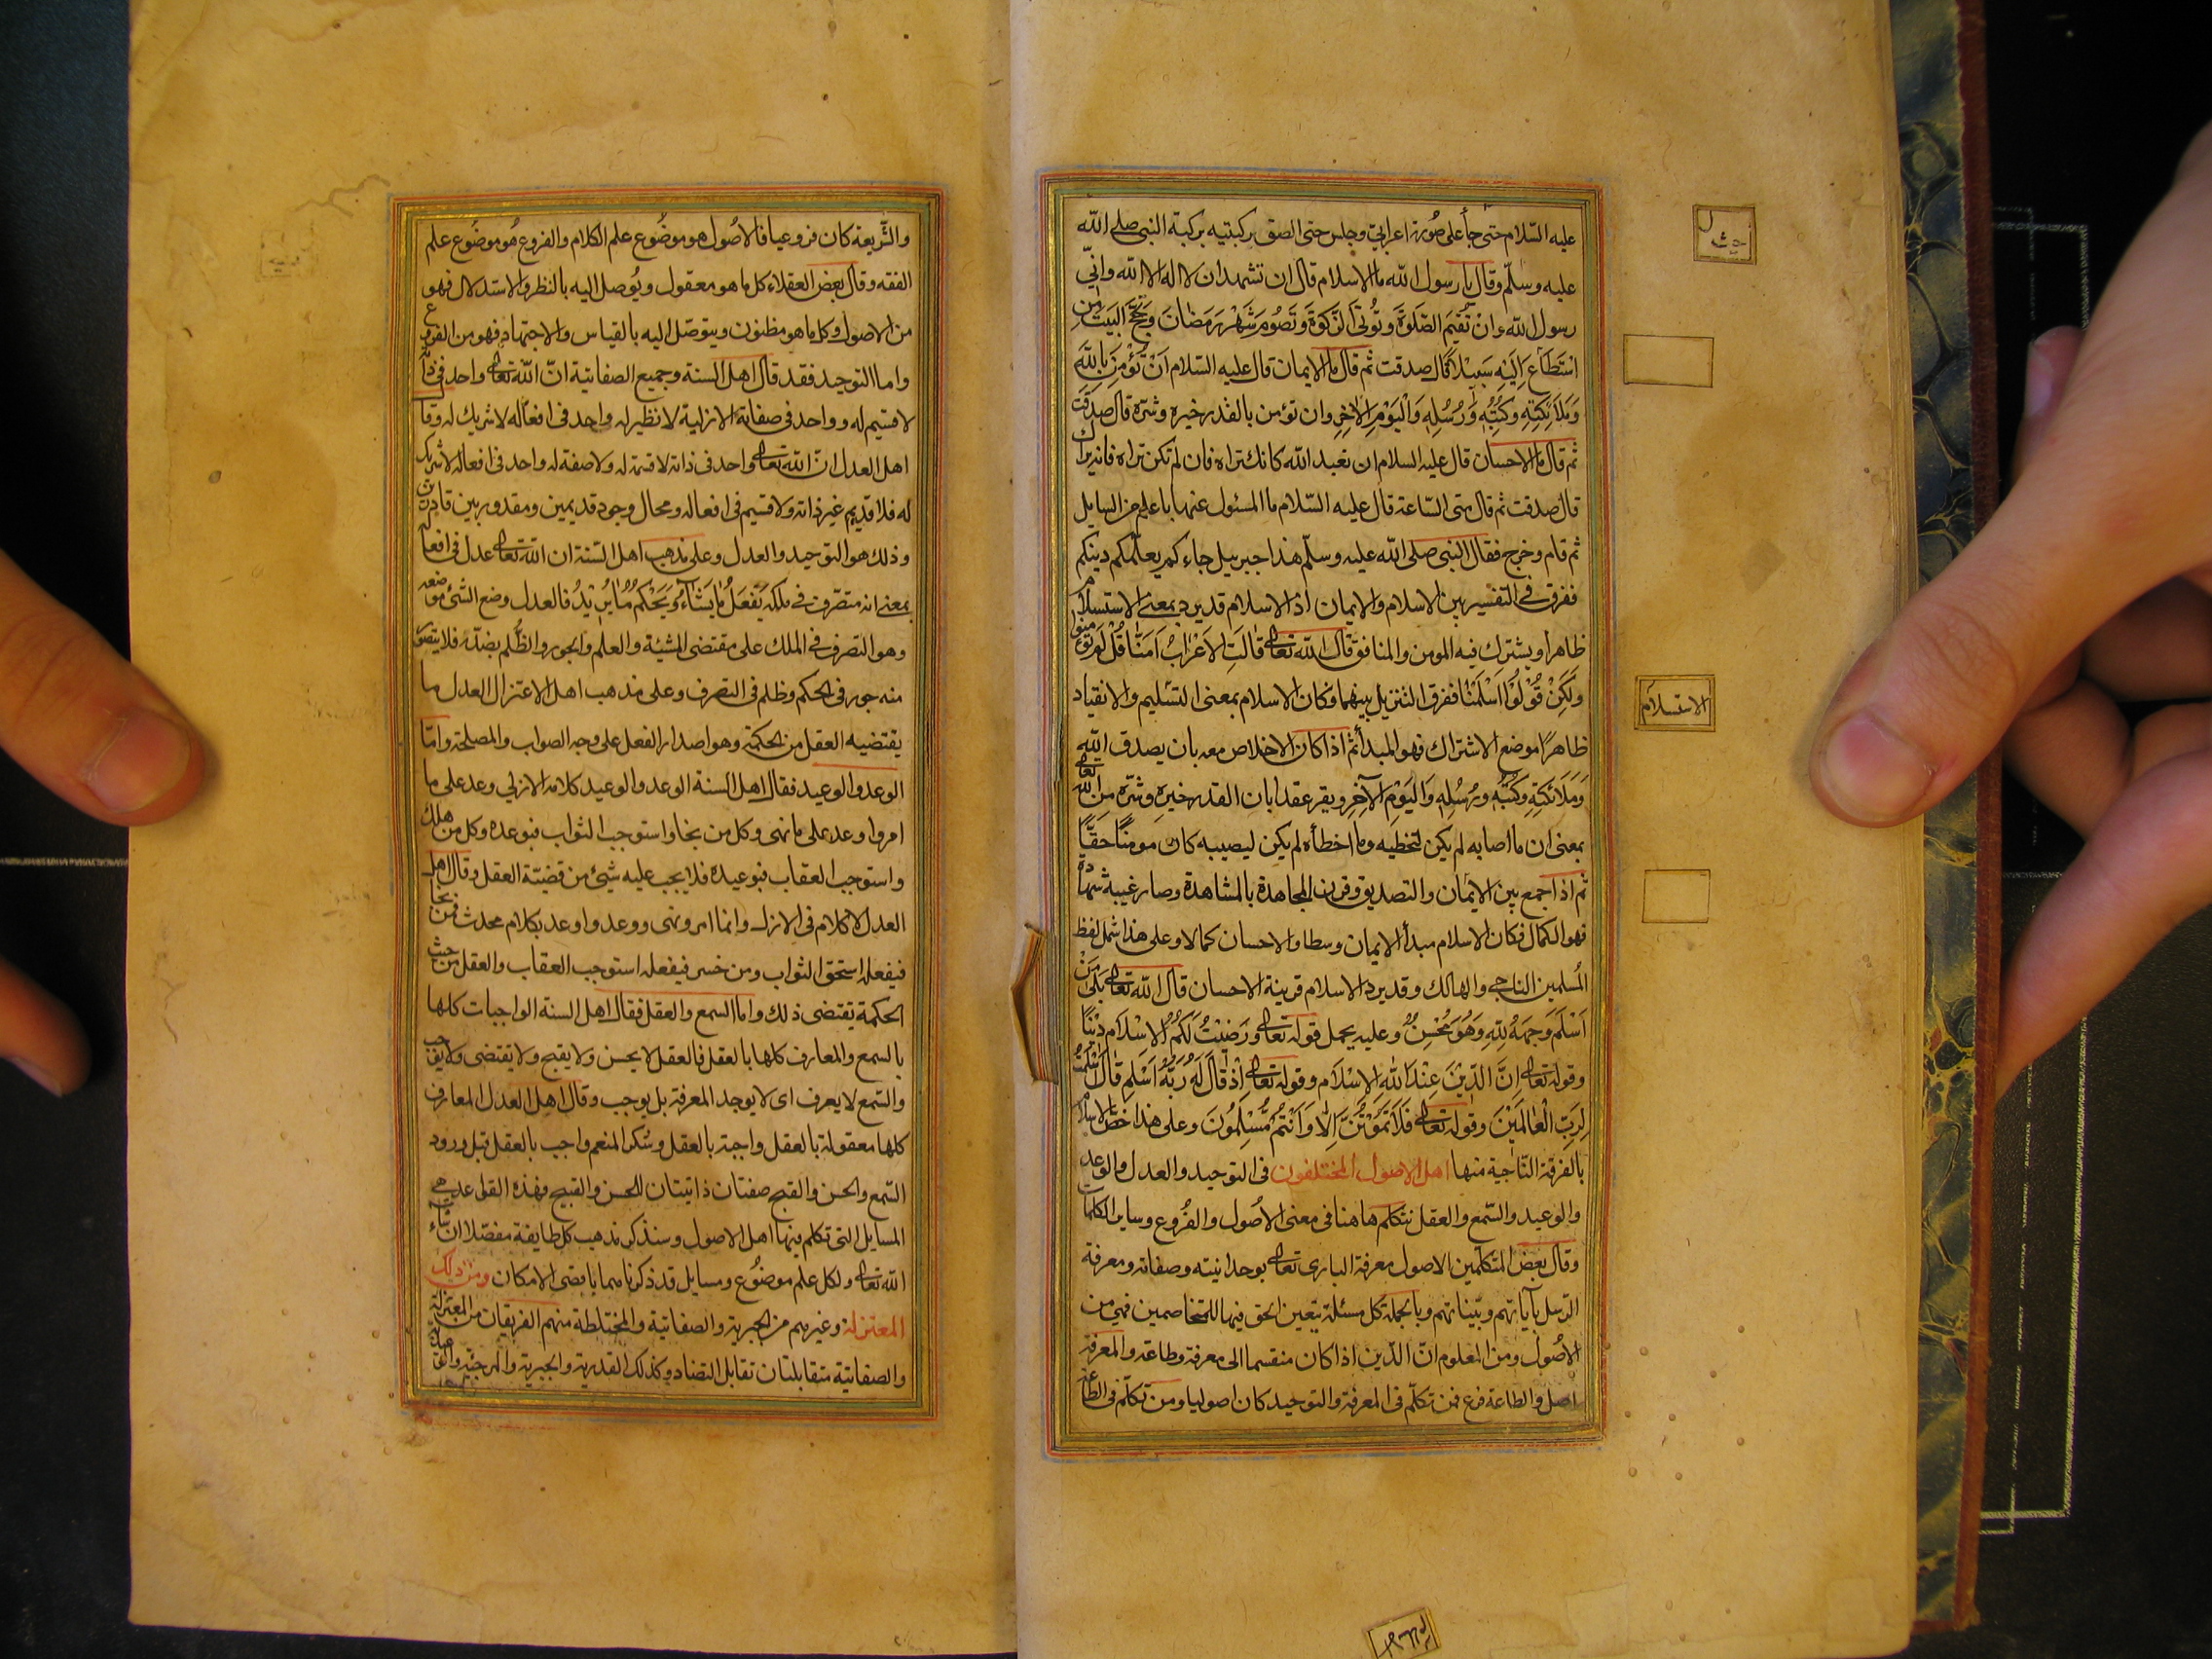 عليه السّلام حتى جأ على صُورة اعرابيّ وجلس حتى الصق ركبتيه بركبة النبى صلى الله
عليه وسلّم وقال يا رسول الله ما الاسلام قال ان تشهد ان لا اله الا الله وانّي
رسول الله وان تُقيمَ الصّلوةَ وتُوتىَ الزَّكوةَ وتَصُومَ شَهْرَ رَمَضَانَ وتَحُجَّ البَيتَ مَنِ
اسْتَطَاعَ اِلَيْهِ سَبيْلاً قال صدقت ثم قال ما الايمان قال عليه السّلام اَنْ تُؤْمِنَ بِاللّٰهِ
وَمَلاَئِكتِهِ وكُتُبِهِ وَرُسُلِهِ وَالْيَوْمِ الاٰخِرِ وان تؤمن بالقدر خيره وشرّه قال صدقت
ثم قال ما الاحسان قال عليه السلام ان تعبد الله كانك تراه فان لم تكن تراه فانه يراك
قال صدقت ثم قال متى السّاعة قال عليه السّلام ما المسئول عنها باعلم من السايل
ثم قام وخرج فقال النبى صلى الله عليه وسلّم هذا جبرييل جاءكم يعلّمكم دينكم
ففرق فى التفسير بين الاسلام والايمان اذ الاسلام قد يرد بمعنى الاستسلام
ظاهرا ويشترك فيه المومن والمنافق قال الله تعالى قَالَتِ الاَعْرَابُ اٰمَنَّا قُلْ لَم تُؤمنوا
ولٰكِنْ قُوْلُوْا اَسْلَمْنَا ففرق التنزيل بينهما وكان الاسلام بمعنى التسليم والانقياد
ظاهرًا موضع الاشتراك فهو المبدأ ثم اذا كان الاخلاص معه بان يصدق الله تعالى
وَمَلَائكتِهِ وكتبهِ ورُسُلِهِ وَاليَوْمِ الآخِرِ ويقر عقدا بان القدر خيرِهِ وشَرِّه مِنَ الله
بمعنى ان ما اصابه لم يكن لتخطيه وما اخطأه لم يكن ليصيبه كان مومنًا حَقًّا
ثم اذا جمع بين الايمان والتصديق وقرن المجاهدة بالمشاهدة وصار غيبه شهادة
فهو الكمال فكان الاسلام مبدأ الايمان وسطا والاحسان كمالا وعلى هذا شمل لفظ
المُسلمين الناجى والهالك وقد يرد الاسلام قرينة الاحسان قال الله تعالى بَلَى مَنْ
اَسْلَمَ وَجهَهُ لِلّٰهِ وَهُوَ مُحْسِنٌ وعليه يحمل قوله تعالى ورَضِيْتُ لَكُمُ الاِسْلَام دِيْنًا
وقوله تعالى اِنَّ الدّيْنَ عِنْدَ اللهِ الاِسْلَام وقوله تعالى اِذْ قَالَ لَهُ رَبُّهُ اَسْلِم قالَ اَسْلَمْتُ
لِرَبِّ الْعَالَمِيْنَ وقوله تعالى فَلَا تَمُوْتُنَّ اِلَّا وَاَنْتُمْ مُّسْلِمُونَ وعلى هذا خصّ الاسلام
بالفرقة النّاجية منها اهل الاصول المختلفون فى التوحيد والعدل والوعد
والوعيد والسّمع والعقل نتكلم هاهنا فى معنى الاصُول والفُروع وساير الكلمات
وقال بعض المتكلّمين الاصول معرفة البارى تعالى بوحدانيته وصفاته ومعرفة
الرّسل بآياتهم وبيّناتهم وبالجملة كل مسئلة يتعين الحق فيها للمتخاصمين فهي من
الاصُول ومن المعلوم انّ الدّين اذا كان منقسما الى معرفة وطاعة والمعرفة
اصل والطاعة فرع فمن تكلّم فى المعرفة والتوحيد كان اصوليا ومن تكلّم فى الطاعة
الاستسلام
والشّريعة كان فروعيا فالاصُول هو موضُوع علم الكلام والفروع هُو موضُوع علم
الفقه وقال بعض العقلاء كل ما هو معقول ويُوصل اليه بالنظر والاستدلال فهو
من الاصول وكل ما هو مظنون ويتوصّل اليه بالقياس والاجتهاد فهو من الفروع
واما التوحيد فقد قال اهل السنة وجميع الصفاتية انّ الله تعالى واحد فى ذاته
لا قسيم له وواحد فى صفاته الازلية لا نظير له وواحد فى افعاله لا شريك له وقال
اهل العدل انّ الله تعالى واحد فى ذاته لا قسمة له ولا صفة له واحد فى افعاله لا شريك
له فلا قديم غير ذاته ولا قسيم فى افعاله ومحال وجود قديمين ومقدور بين قادرين
وذلك هو التوحيد والعدل وعلى مذهب اهل السّنة ان الله تعالى عدل فى افعاله
بمعنى انه متصّرف فى ملكه يَفعَلُ مَا يَشَاءُ وَيَحْكُمُ مَا يُرِيْدُ فالعدل وضع الشئ موضعه
وهو التصرف فى الملك على مقتضى المشيّة والعلم والجور والظّلم بضدّه فلا يتصوّر
منه جور فى الحكم وظلم فى التصرف وعلى مذهب اهل الاعتزال العدل ما
يقتضيه العقل من الحكمة وهو اصدار الفعل على وجه الصواب والمصلحة وامّا
الوعد والوعيد فقال اهل السنة الوعد والوعيد كلامه الازلي وعد على ما
امر واوعد على ما نهى وكل من نجا واستوجب الثواب فبوعده وكل من هلك
واستوجب العقاب فبوعيده فلا يجب عليه شيئ من قضيّة العقل وقال اهل
العدل لا كلام فى الازل وانما امر ونهى ووعد واوعد بكلام محدث فمن نجا
فيفعله استحق الثواب ومن خسر فيفعله استوجب العقاب والعقل من حيث
الحكمة يقتضى ذلك واما السمع والعقل فقال اهل السنة الواجبات كلها
بالسمع والمعارف كلها بالعقل فالعقل لا يحسن ولا يقبح ولا يقتضى ولا يوجب
والسّمع لا يعرف اى لا يوجد المعرفة بل يوجب وقال اهل العدل المعارف
كلها معقولة بالعقل واجبة بالعقل وشكر المنعم واجب بالعقل قبل ورود
السّمع والحسن والقبح صفتان ذاتيتان للحسن والقبيح فهذه القواعد هى
المسايل التى تكلم فيها اهل الاصول وسنذكر مذهب كل طايفة مفصّلا ان شاء
الله تعالى ولكل علم موضوع ومسايل قد ذكرناهما باقصى الامكان ومن ذلك
المعتزلة وغيرهم من الجبرية والصفاتية والمختلطة منهم الفريقان من المعتزلة
والصفاتية متقابلتان تقابل التضاد وكذلك القدرية والجبرية والمرجئة والوعيدية